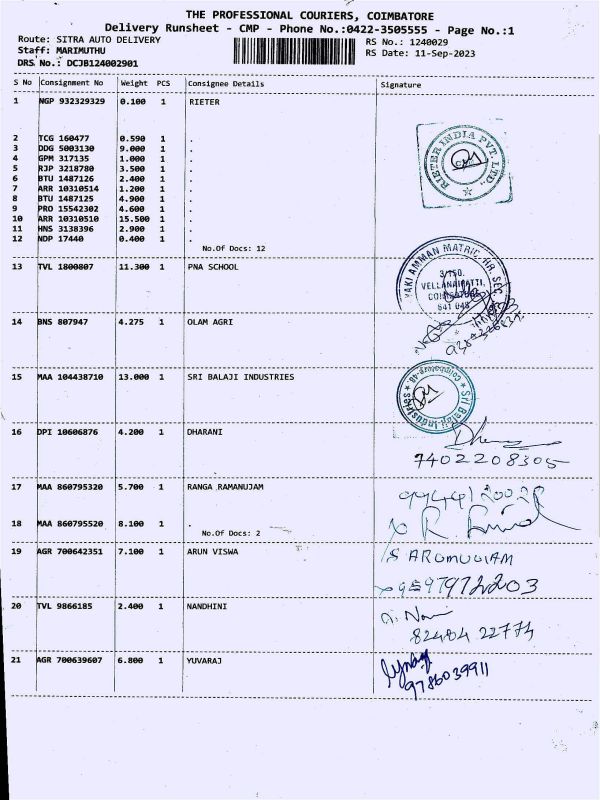 THE PROFESSIONAL COURIERS, COIMBATORE
Delivery Runsheet - CMP - Phone No.:0422-3505555 - Page No.:1
Route: SITRA AUTO DELIVERY RS No.: 1240029
Staff: MARIMUTHU RS Date: 11-Sep-2023
DRS No.: DCJB124002901
S No Consignment No Weight PCS Consignee Details Signature
1 NGP 932329329 0.100 1 RIETER
2 TCG 160477 0.590 1 .
3 DDG 5003130 9.000 1 .
4 GPM 317135 1.000 1 .
5 RJP 3218780 3.500 1 .
6 BTU 1487126 2.400 1 .
7 ARR 10310514 1.200 1 .
8 BTU 1487125 4.900 1 .
9 PRO 15542302 4.600 1 .
10 ARR 10310510 15.500 1 .
11 HNS 3138396 2.900 1 .
12 NDP 17440 0.400 1 .
No.Of Docs: 12
RIETER INDIA PVT. LTD.,
13 TVL 1800807 11.300 1 PNA SCHOOL
AMMAN MATRIC. HR. SEC.
3/150.
641 048
14 BNS 807947 4.275 1 OLAM AGRI
15 MAA 104438710 13.000 1 SRI BALAJI INDUSTRIES
Sri Balaji Industries
Coimbatore-48.
16 DPI 10606876 4.200 1 DHARANI
7402208305
17 MAA 860795320 5.700 1 RANGA RAMANUJAM
18 MAA 860795520 8.100 1 .
No.Of Docs: 2
19 AGR 700642351 7.100 1 ARUN VISWA
S ARUMUGAM
20 TVL 9866185 2.400 1 NANDHINI
82484 22774
21 AGR 700639607 6.800 1 YUVARAJ
9786039911